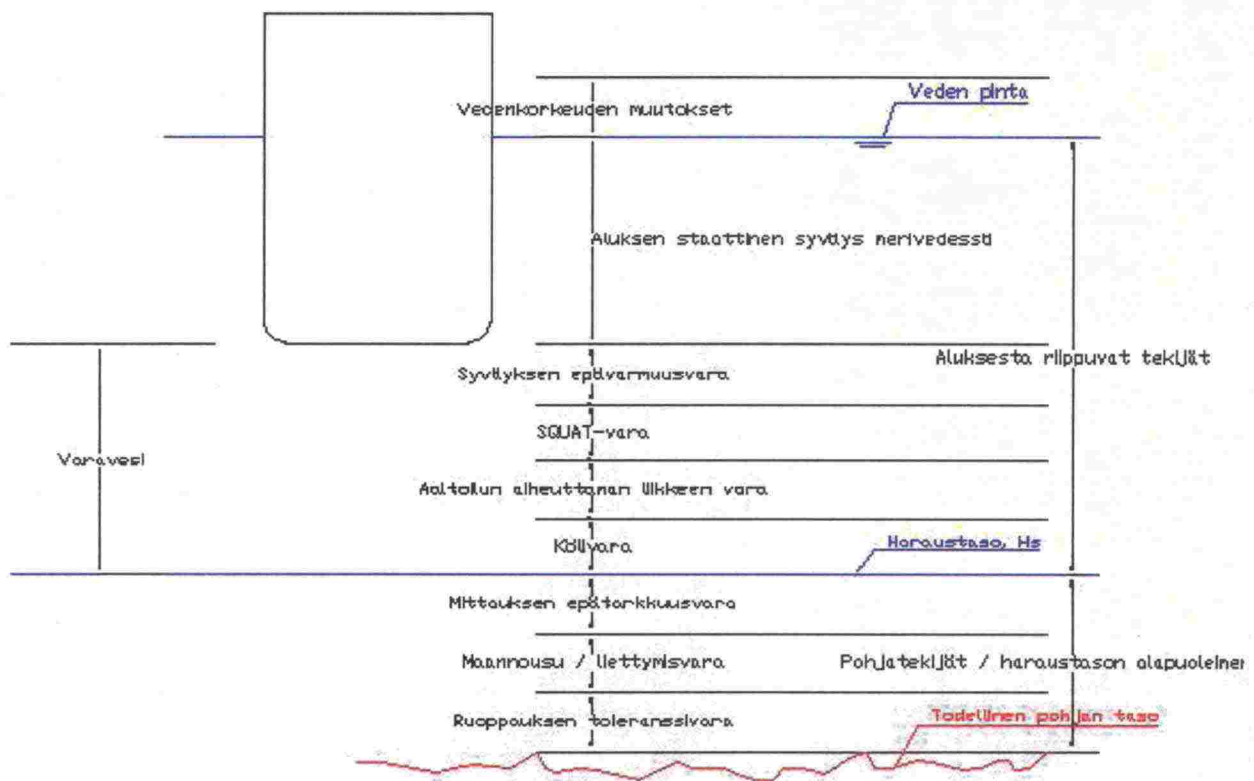 Veden pinta
Vedenkorkeuden muutokset
Aluksen staattinen syväys merivedessä
Aluksesta riippuvat tekijät
Syväyksen epävarmuusvara
SQUAT-vara
Varavesi
Aaltoilun aiheuttaman liikkeen vara
Kölivara
Haraustaso, Hs
Mittauksen epätarkkuusvara
Maannousu / liettymisvara
Pohjatekijät / haraustason alapuoleiner
Ruoppauksen toleranssivara
Todellinen pohjan taso